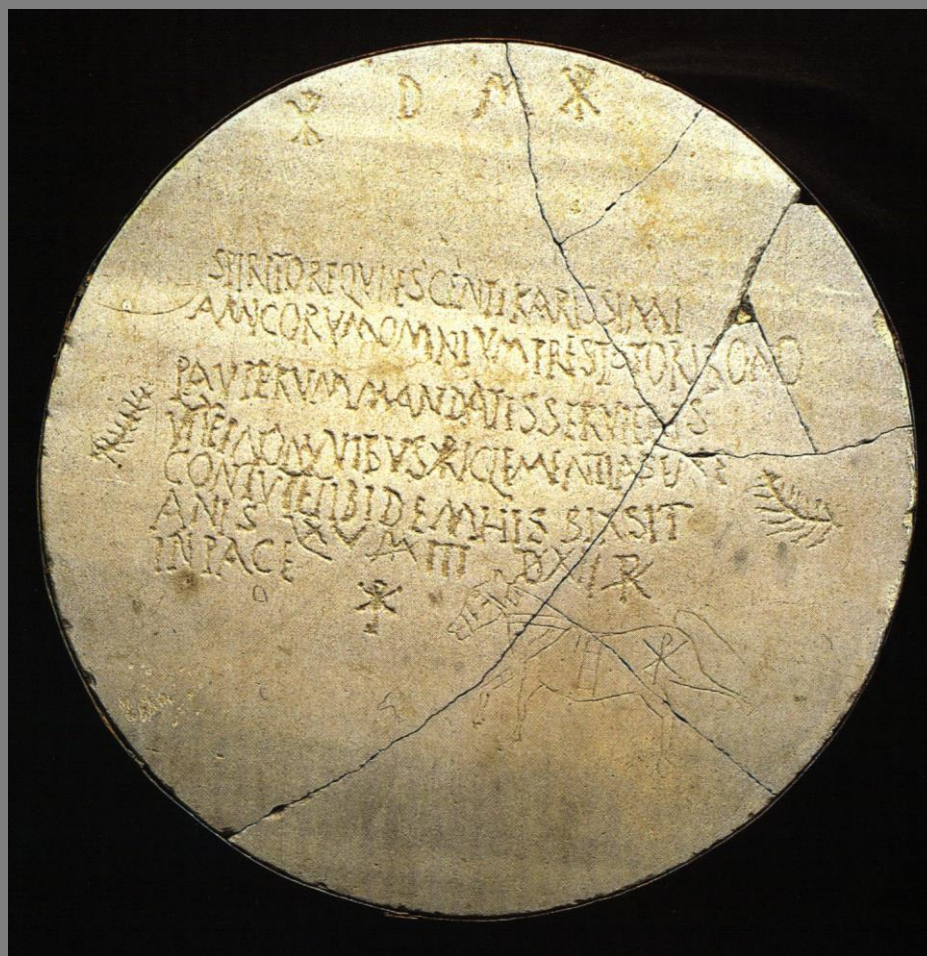 ☧ D M ☧
SPIRITO REQVIESCENTI KARISSIMI
AMICORVM OMNIVM PRESTATORI BONO
PAVPERVM MANDATIS SERVIENS
CLEMENTIA
IBIDEM HIS BIXSIT
ANIS LXV M III D XII ☧
IN PACE ☧